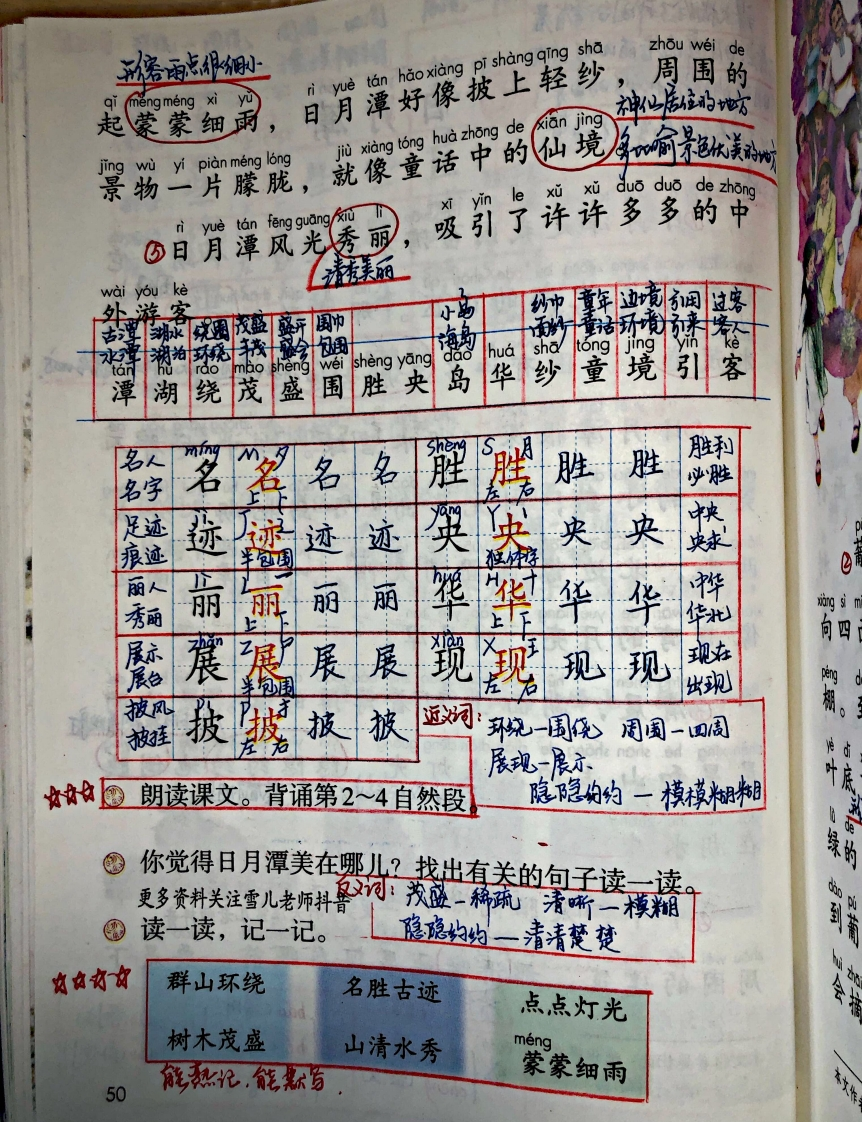 形容雨点很细小
qǐ méng méng xì yǔ rì yuè tán hǎo xiàng pī shàng qīng shā zhōu wéi de
起蒙蒙细雨，日月潭好像披上轻纱，周围的
神仙居住的地方
jǐng wù yí piàn méng lóng jiù xiàng tóng huà zhōng de xiān jìng
景物一片朦胧，就像童话中的仙境
多比喻景色优美的地方
rì yuè tán fēng guāng xiù lì xī yǐn le xǔ xǔ duō duō de zhōng
⑤日月潭风光秀丽，吸引了许许多多的中
清秀美丽
wài yóu kè
外游客
古潭 湖水 绕圈 茂盛 盛开 围巾 小岛 纱巾 童年 边境 引用 过客
水潭 湖泊 环绕 丰茂 盛会 包围 海岛 面纱 童话 环境 引来 客人
tán hú rào mào shèng wéi shèng yāng dǎo huá shā tóng jìng yǐn kè
潭 湖 绕 茂 盛 围 胜 央 岛 华 纱 童 境 引 客
míng M 夕 shèng S 月
名人 名 名 名 名 胜 胜 胜 胜 胜利
名字 上 下 左 右 必胜
jì J 辶 yāng Y 丶
足迹 迹 迹 迹 迹 央 央 央 央 中央
痕迹 半包围 独体字 央求
lì L 一 huá H 十
丽人 丽 丽 丽 丽 华 华 华 华 中华
秀丽 上 下 上 下 华北
zhǎn Z 尸 xiàn X 王
展示 展 展 展 展 现 现 现 现 现在
展台 半包围 左 右 出现
pī P 扌
披风 披 披 披 披
披挂 左 右
近义词：环绕—围绕 周围—四周
展现—展示
隐隐约约—模模糊糊
朗读课文。背诵第2~4自然段。
你觉得日月潭美在哪儿？找出有关的句子读一读。
更多资料关注雪儿老师抖音
反义词：茂盛—稀疏 清晰—模糊
隐隐约约—清清楚楚
读一读，记一记。
群山环绕 名胜古迹 点点灯光
méng
树木茂盛 山清水秀 蒙蒙细雨
能熟记，能默写
50
②
xiàng sì
向四
péng
棚。
yè dǐ
叶底
lǜ de
绿的
dào pú
到葡
huì zhāi
会摘
本文作者